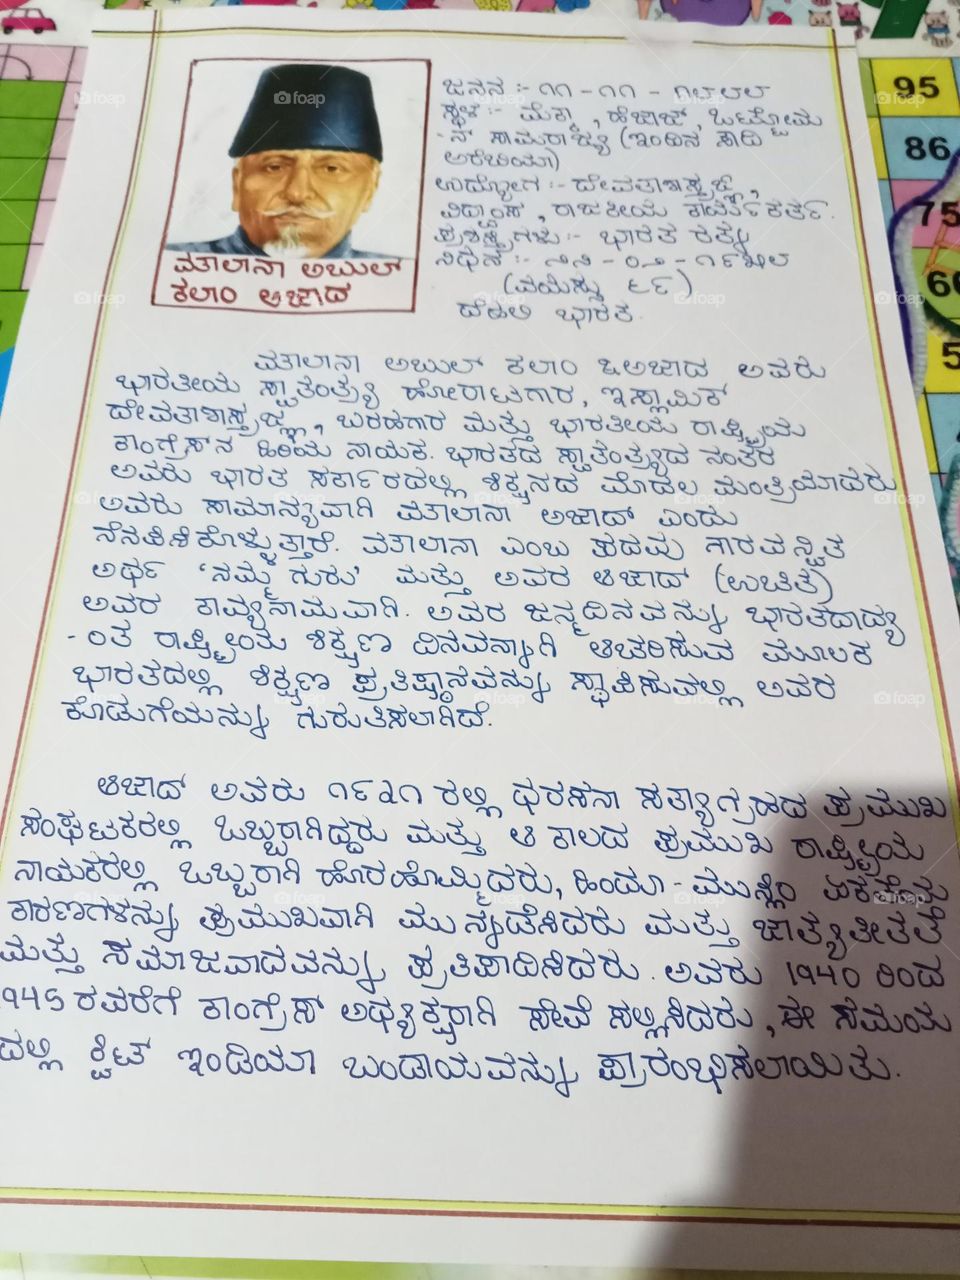 ಮೌಲಾನಾ ಅಬುಲ್
ಕಲಾಂ ಅಜಾದ
ಜನನ :- ೧೧ - ೧೧ - ೧೮೮೮
ಸ್ಥಳ :- ಮೆಕ್ಕಾ , ಹೆಜಾಜ್, ಒಟ್ಟೋಮ
- ನ್ ಸಾಮರಾಜ್ಯ (ಇಂದಿನ ಸೌದಿ
ಅರೇಬಿಯಾ)
ಉದ್ಯೋಗ :- ದೇವತಾಶಾಸ್ತ್ರಜ್ಞ ,
ವಿದ್ವಾಂಸ , ರಾಜಕೀಯ ಕಾರ್ಯಕರ್ತ.
ಪ್ರಶಸ್ತಿಗಳು :- ಭಾರತ ರತ್ನ
ನಿಧನ :- ೨೨ - ೦೨ - ೧೯೫೮
(ವಯಸ್ಸು ೬೯)
ದೆಹಲಿ ಭಾರತ.
ಮೌಲಾನಾ ಅಬುಲ್ ಕಲಾಂ ಅಜಾದ ಅವರು
ಭಾರತೀಯ ಸ್ವಾತಂತ್ರ್ಯ ಹೋರಾಟಗಾರ, ಇಸ್ಲಾಮಿಕ್
ದೇವತಾಶಾಸ್ತ್ರಜ್ಞ, ಬರಹಗಾರ ಮತ್ತು ಭಾರತೀಯ ರಾಷ್ಟ್ರೀಯ
ಕಾಂಗ್ರೆಸ್‌ನ ಹಿರಿಯ ನಾಯಕ. ಭಾರತದ ಸ್ವಾತಂತ್ರ್ಯದ ನಂತರ
ಅವರು ಭಾರತ ಸರ್ಕಾರದಲ್ಲಿ ಶಿಕ್ಷನದ ಮೊದಲ ಮಂತ್ರಿಯಾದರು
ಅವರು ಸಾಮಾನ್ಯವಾಗಿ ಮೌಲಾನಾ ಅಜಾದ್ ಎಂದು
ನೆನಪಿಸಿಕೊಳ್ಳುತ್ತಾರೆ. ಮೌಲಾನಾ ಎಂಬ ಪದವು ಗೌರವಾನ್ವಿತ
ಅರ್ಥ 'ನಮ್ಮ ಗುರು' ಮತ್ತು ಅವರ ಆಜಾದ್ (ಉಚಿತ)
ಅವರ ಕಾವ್ಯನಾಮವಾಗಿ. ಅವರ ಜನ್ಮದಿನವನ್ನು ಭಾರತದಾದ್ಯ
- ಂತ ರಾಷ್ಟ್ರೀಯ ಶಿಕ್ಷಣ ದಿನವನ್ನಾಗಿ ಆಚರಿಸುವ ಮೂಲಕ
ಭಾರತದಲ್ಲಿ ಶಿಕ್ಷಣ ಪ್ರತಿಷ್ಠಾನವನ್ನು ಸ್ಥಾಪಿಸುವಲ್ಲಿ ಅವರ
ಕೊಡುಗೆಯನ್ನು ಗುರುತಿಸಲಾಗಿದೆ.
ಆಜಾದ್ ಅವರು ೧೯೩೧ ರಲ್ಲಿ ಧರಸನಾ ಸತ್ಯಾಗ್ರಹದ ಪ್ರಮುಖ
ಸಂಘಟಕರಲ್ಲಿ ಒಬ್ಬರಾಗಿದ್ದರು ಮತ್ತು ಆ ಕಾಲದ ಪ್ರಮುಖ ರಾಷ್ಟ್ರೀಯ
ನಾಯಕರಲ್ಲಿ ಒಬ್ಬರಾಗಿ ಹೊರಹೊಮ್ಮಿದರು, ಹಿಂದೂ - ಮುಸ್ಲಿಂ ಏಕತೆಯ
ಕಾರಣಗಳನ್ನು ಪ್ರಮುಖವಾಗಿ ಮುನ್ನಡೆಸಿದರು ಮತ್ತು ಜಾತ್ಯತೀತತೆ
ಮತ್ತು ಸಮಾಜವಾದವನ್ನು ಪ್ರತಿಪಾದಿಸಿದರು. ಅವರು 1940 ರಿಂದ
1945 ರವರೆಗೆ ಕಾಂಗ್ರೆಸ್ ಅಧ್ಯಕ್ಷರಾಗಿ ಸೇವೆ ಸಲ್ಲಿಸಿದರು, ಈ ಸಮಯ
ದಲ್ಲಿ ಕ್ವಿಟ್ ಇಂಡಿಯಾ ಬಂಡಾಯವನ್ನು ಪ್ರಾರಂಭಿಸಲಾಯಿತು.
95
86
75
66
5
foap